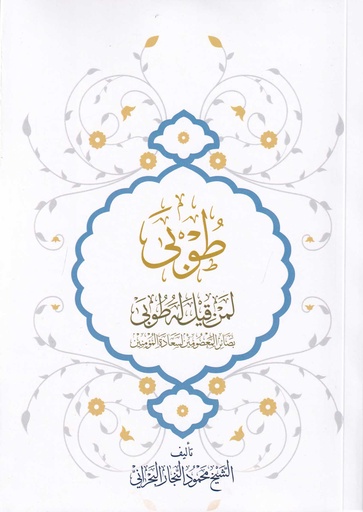 طُوْبَى
لمن قيل له طوبى
بصائر المعصومين لسعادة المؤمنين
تأليف
الشيخ محمود النجار البحراني